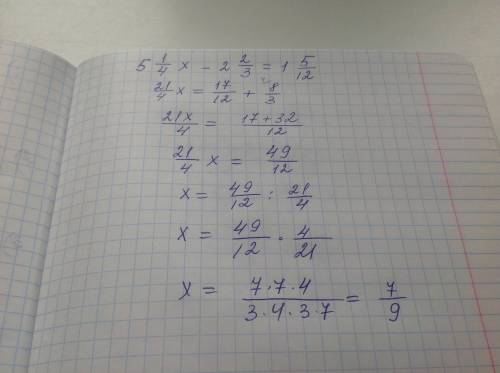 5 1/4 x - 2 2/3 = 1 5/12
21/4 x = 17/12 + 8/3
21x/4 = 17+32/12
21/4 x = 49/12
x = 49/12 : 21/4
x = 49/12 · 4/21
x = 7·7·4/3·4·3·7 = 7/9